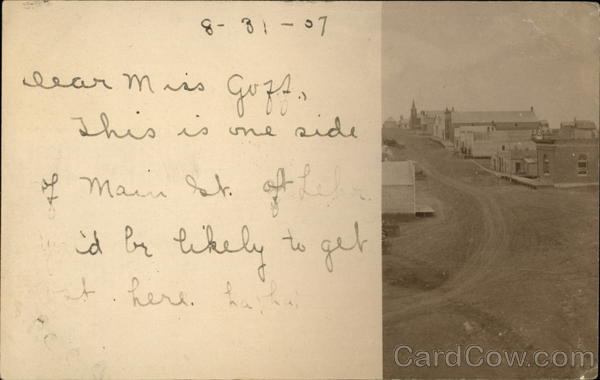 8-31-07
Dear Miss Goff,
This is one side
of Main St. of Lehr
i'd be likely to get
here. ha! ha!
CardCow.com